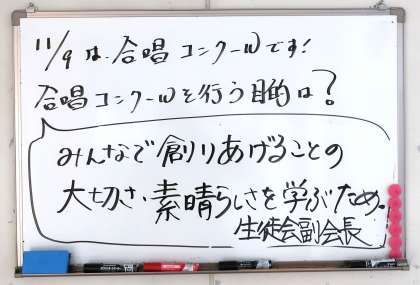 11/9 は、合唱コンクールです!
合唱コンクールを行う目的は?
みんなで創りあげることの
大切さ、素晴らしさを学ぶため。
生徒会副会長